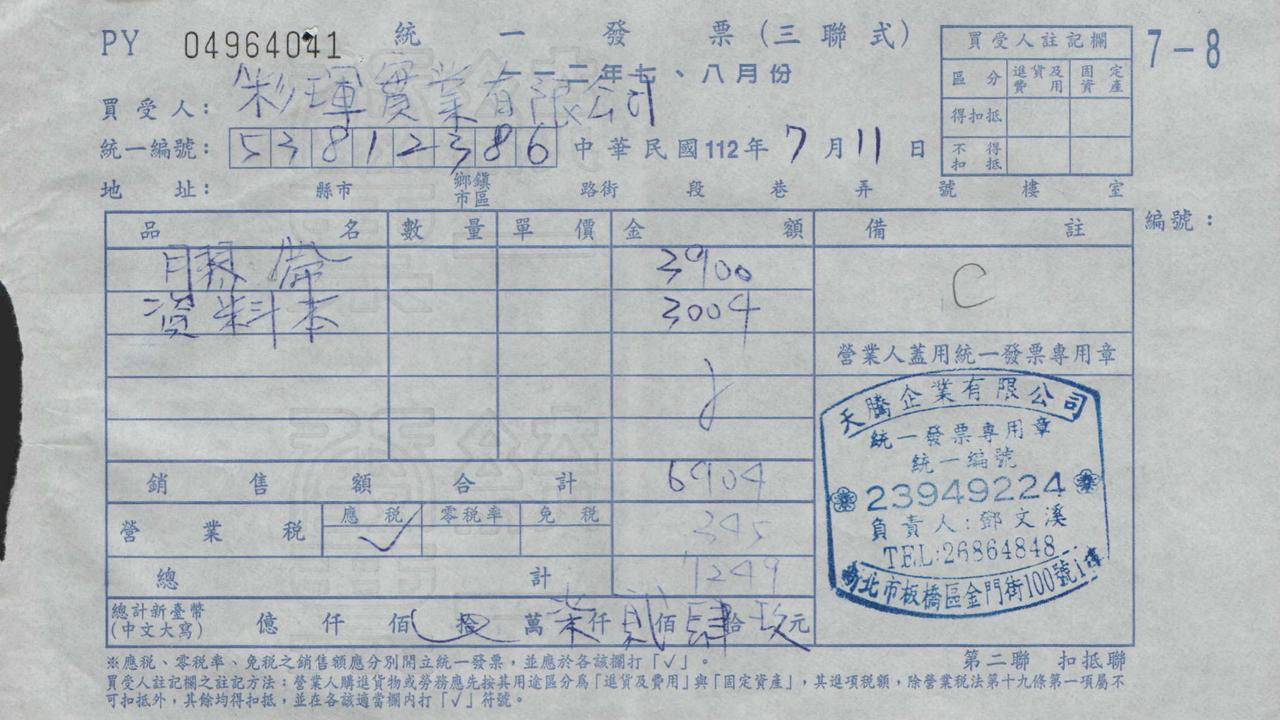 PY 04964041 統一發票(三聯式)
一一二年七、八月份
7-8
買受人註記欄
區分 進貨及費用 固定資產
得扣抵
不得扣抵
買受人: 彬琿實業有限公司
統一編號: 53812386 中華民國112年7月11日
地址: 縣市 鄉鎮市區 路街 段 巷 弄 號 樓 室
品名 數量 單價 金額 備註 編號:
膠帶 3900 C
資料本 3004
營業人蓋用統一發票專用章
銷售額合計 6904
營業稅 應稅 ✓ 零稅率 免稅 345
總計 7249
總計新臺幣(中文大寫) 億 仟 佰 拾 萬 柒 仟 貳 佰 肆 拾 玖 元
天騰企業有限公司
統一發票專用章
統一編號
23949224
負責人:鄧文溪
TEL:26864848
新北市板橋區金門街100號1樓
※應稅、零稅率、免稅之銷售額應分別開立統一發票,並應於各該欄打「✓」。
第二聯 扣抵聯
買受人註記欄之註記方法:營業人購進貨物或勞務應先按其用途區分為「進貨及費用」與「固定資產」,其進項稅額,除營業稅法第十九條第一項屬不
可扣抵外,其餘均得扣抵,並在各該適當欄內打「✓」符號。